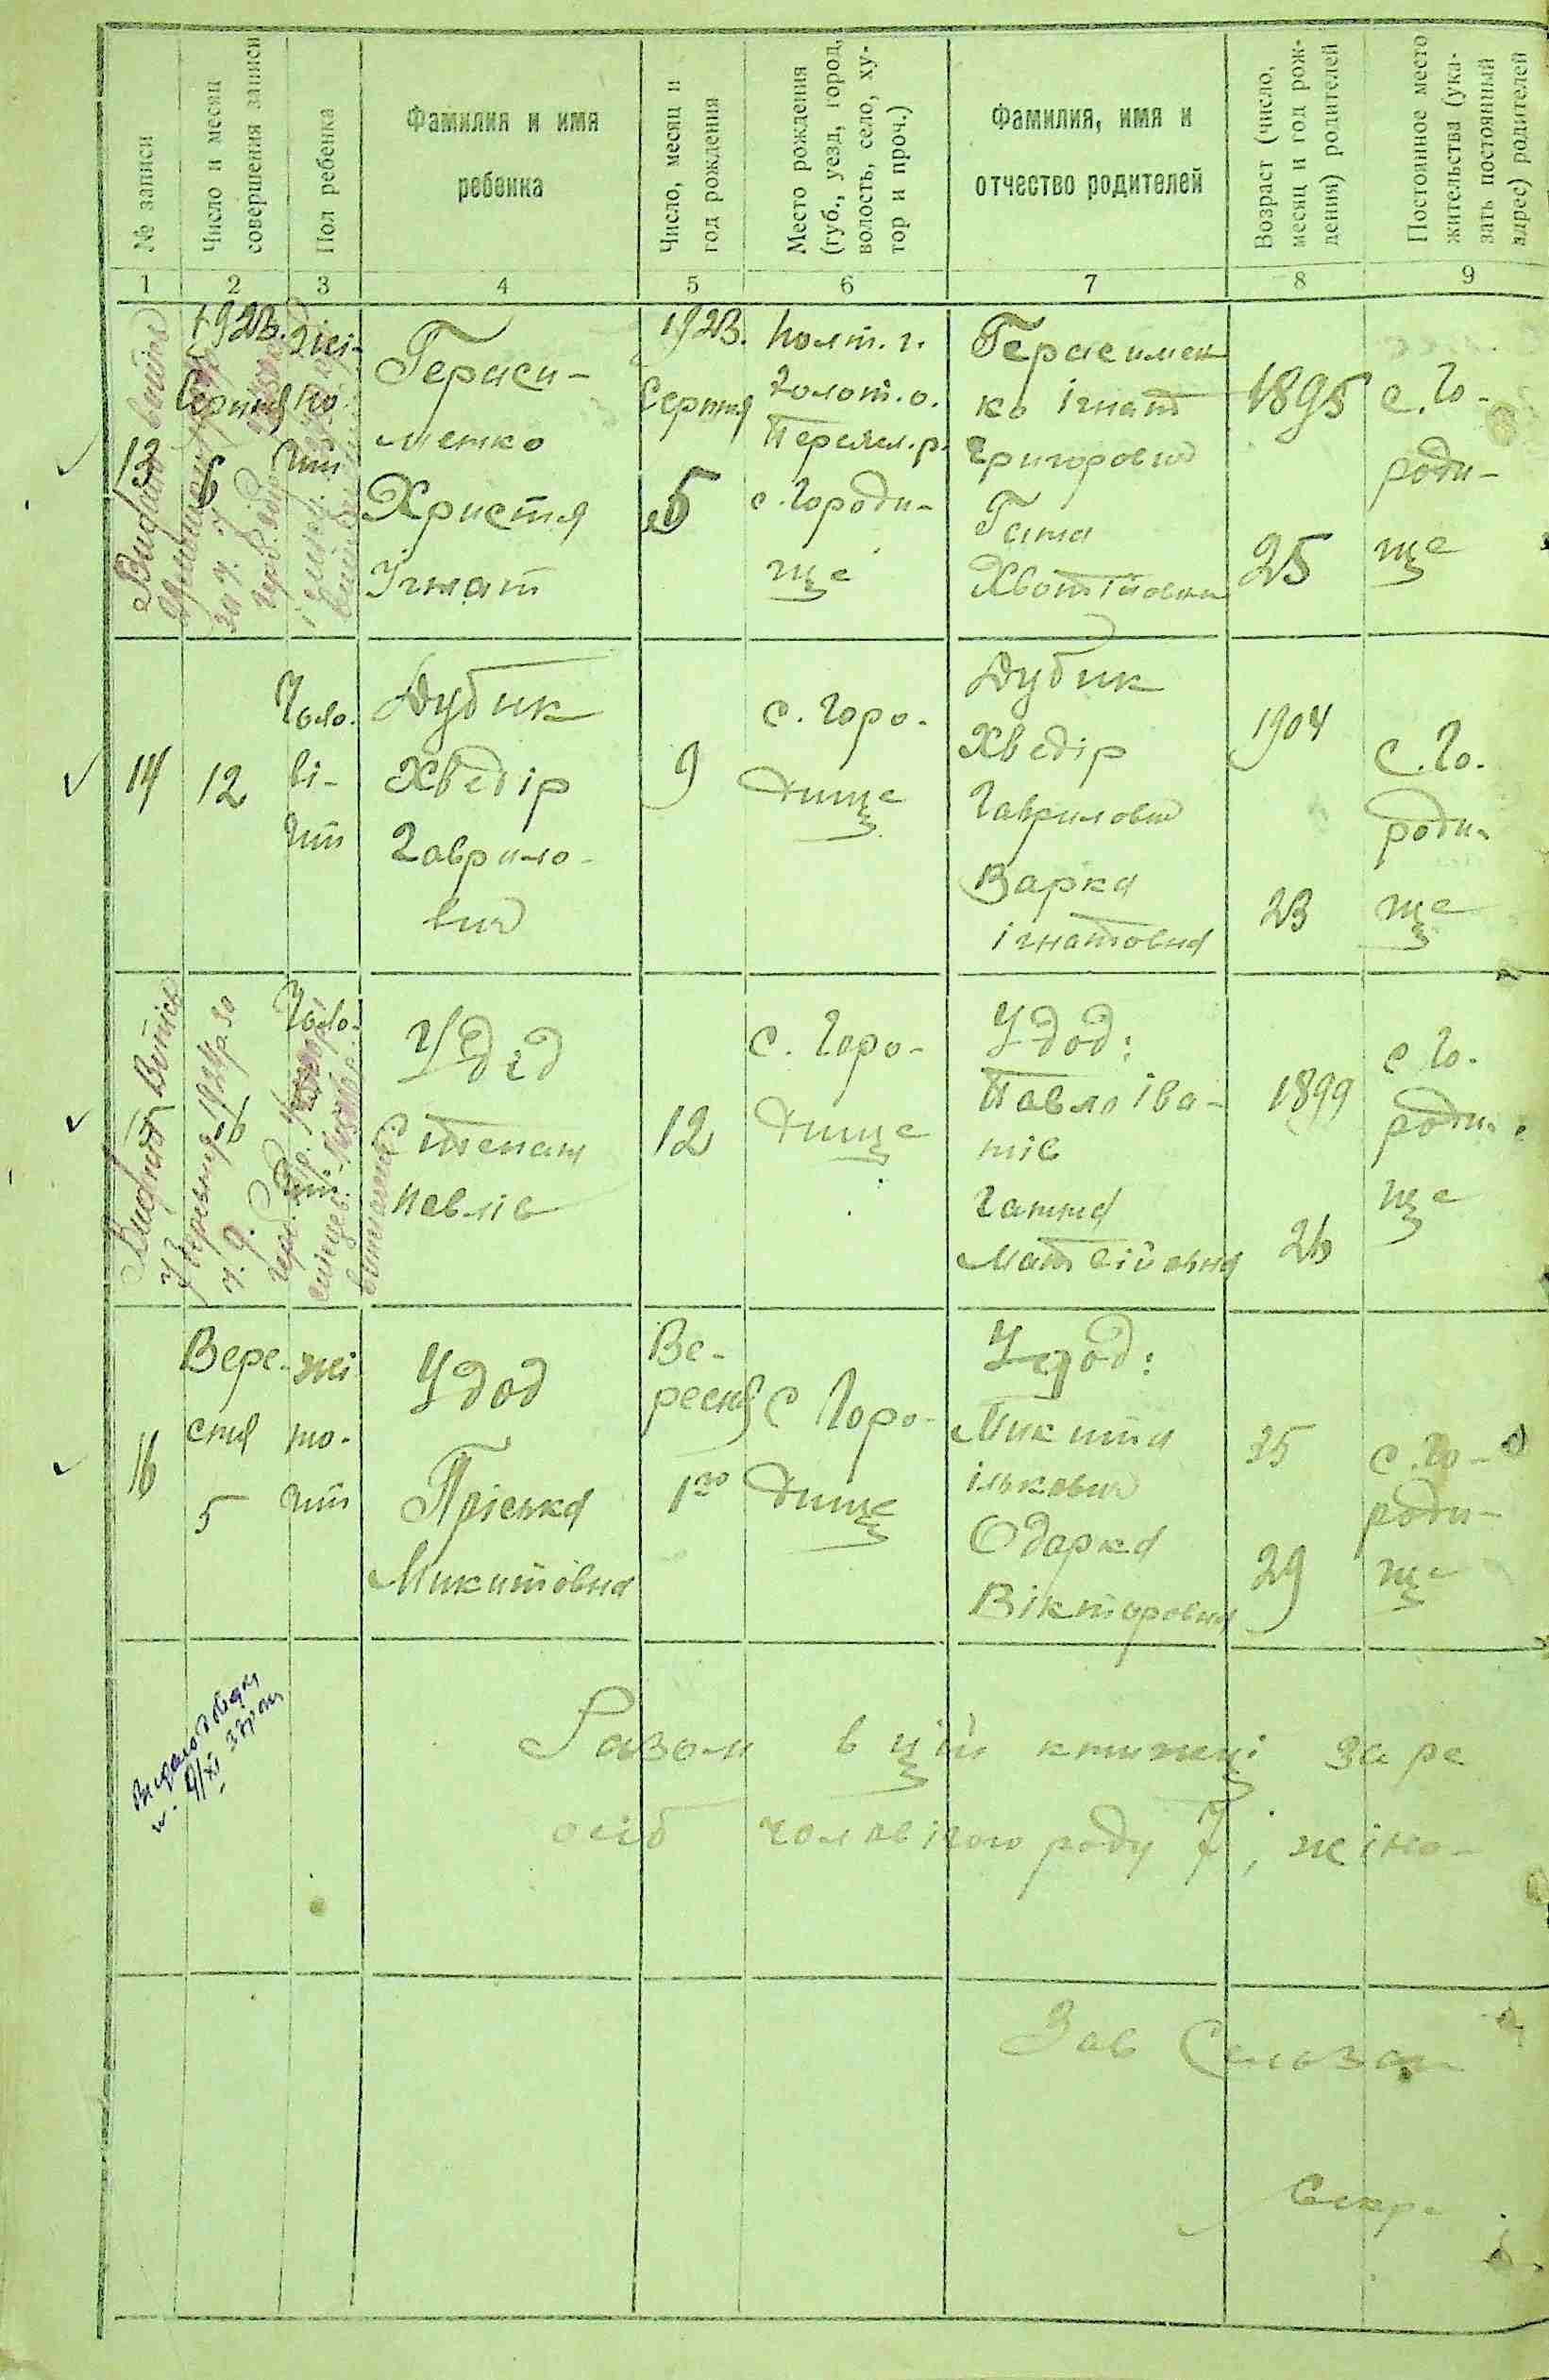 № записи
Число и месяц
совершения записи
Пол ребенка
Фамилия и имя
ребенка
Число, месяц и
год рождения
Место рождения
(губ., уезд, город,
волость, село, ху-
тор и проч.)
Фамилия, имя и
отчество родителей
Возраст (число,
месяц и год рож-
дения) родителей
Постоянное место
жительства (ука-
зать постоянный
адрес) родителей
1 2 3 4 5 6 7 8 9
13
1923.
Серпня
6
Жі-
но
чий
Гераси-
менко
Христя
Ігнат
1923.
Серпня
5
Полт. г.
Золот. о.
Переясл. р.
с. Городи-
ще
Герасимен
ко Ігнат
Григорович
Гапа
Хвотіївна
1895
25
с. Го-
роди-
ще
14
12
Чоло.
ві-
чий
Дубик
Хведір
Гаврило-
вич
9
с. Горо-
дище
Дубик
Хведір
Гаврилович
Варка
ігнатовна
1904
23
с. Го-
роди-
ще
Виданий Витяг
15
16
Чоло-
чий
Удод
Степан
Павлів
12
с. Горо-
дище
Удод:
Павло Іва-
нів
Ганна
Матвійовна
1899
26
с Го-
роди-
ще
16
Вере-
сня
5
жі
но-
чий
Удод
Пріська
Микитовна
Ве-
ресня
1го
с Горо-
дище
Удод:
Микита
ількович
Одарка
Вікторовна
35
29
с. Го-
роди-
ще
Разом в цій книжці заре
осіб чоловічого роду 7, жіно-
Зав
Секр